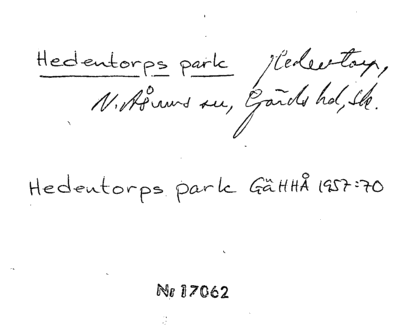 Hedentorps park Hedentorp,
N. Åsums sn, Gärds hd, Sk.
Hedentorps park GÄHHÅ 1957:70
Nr 17062